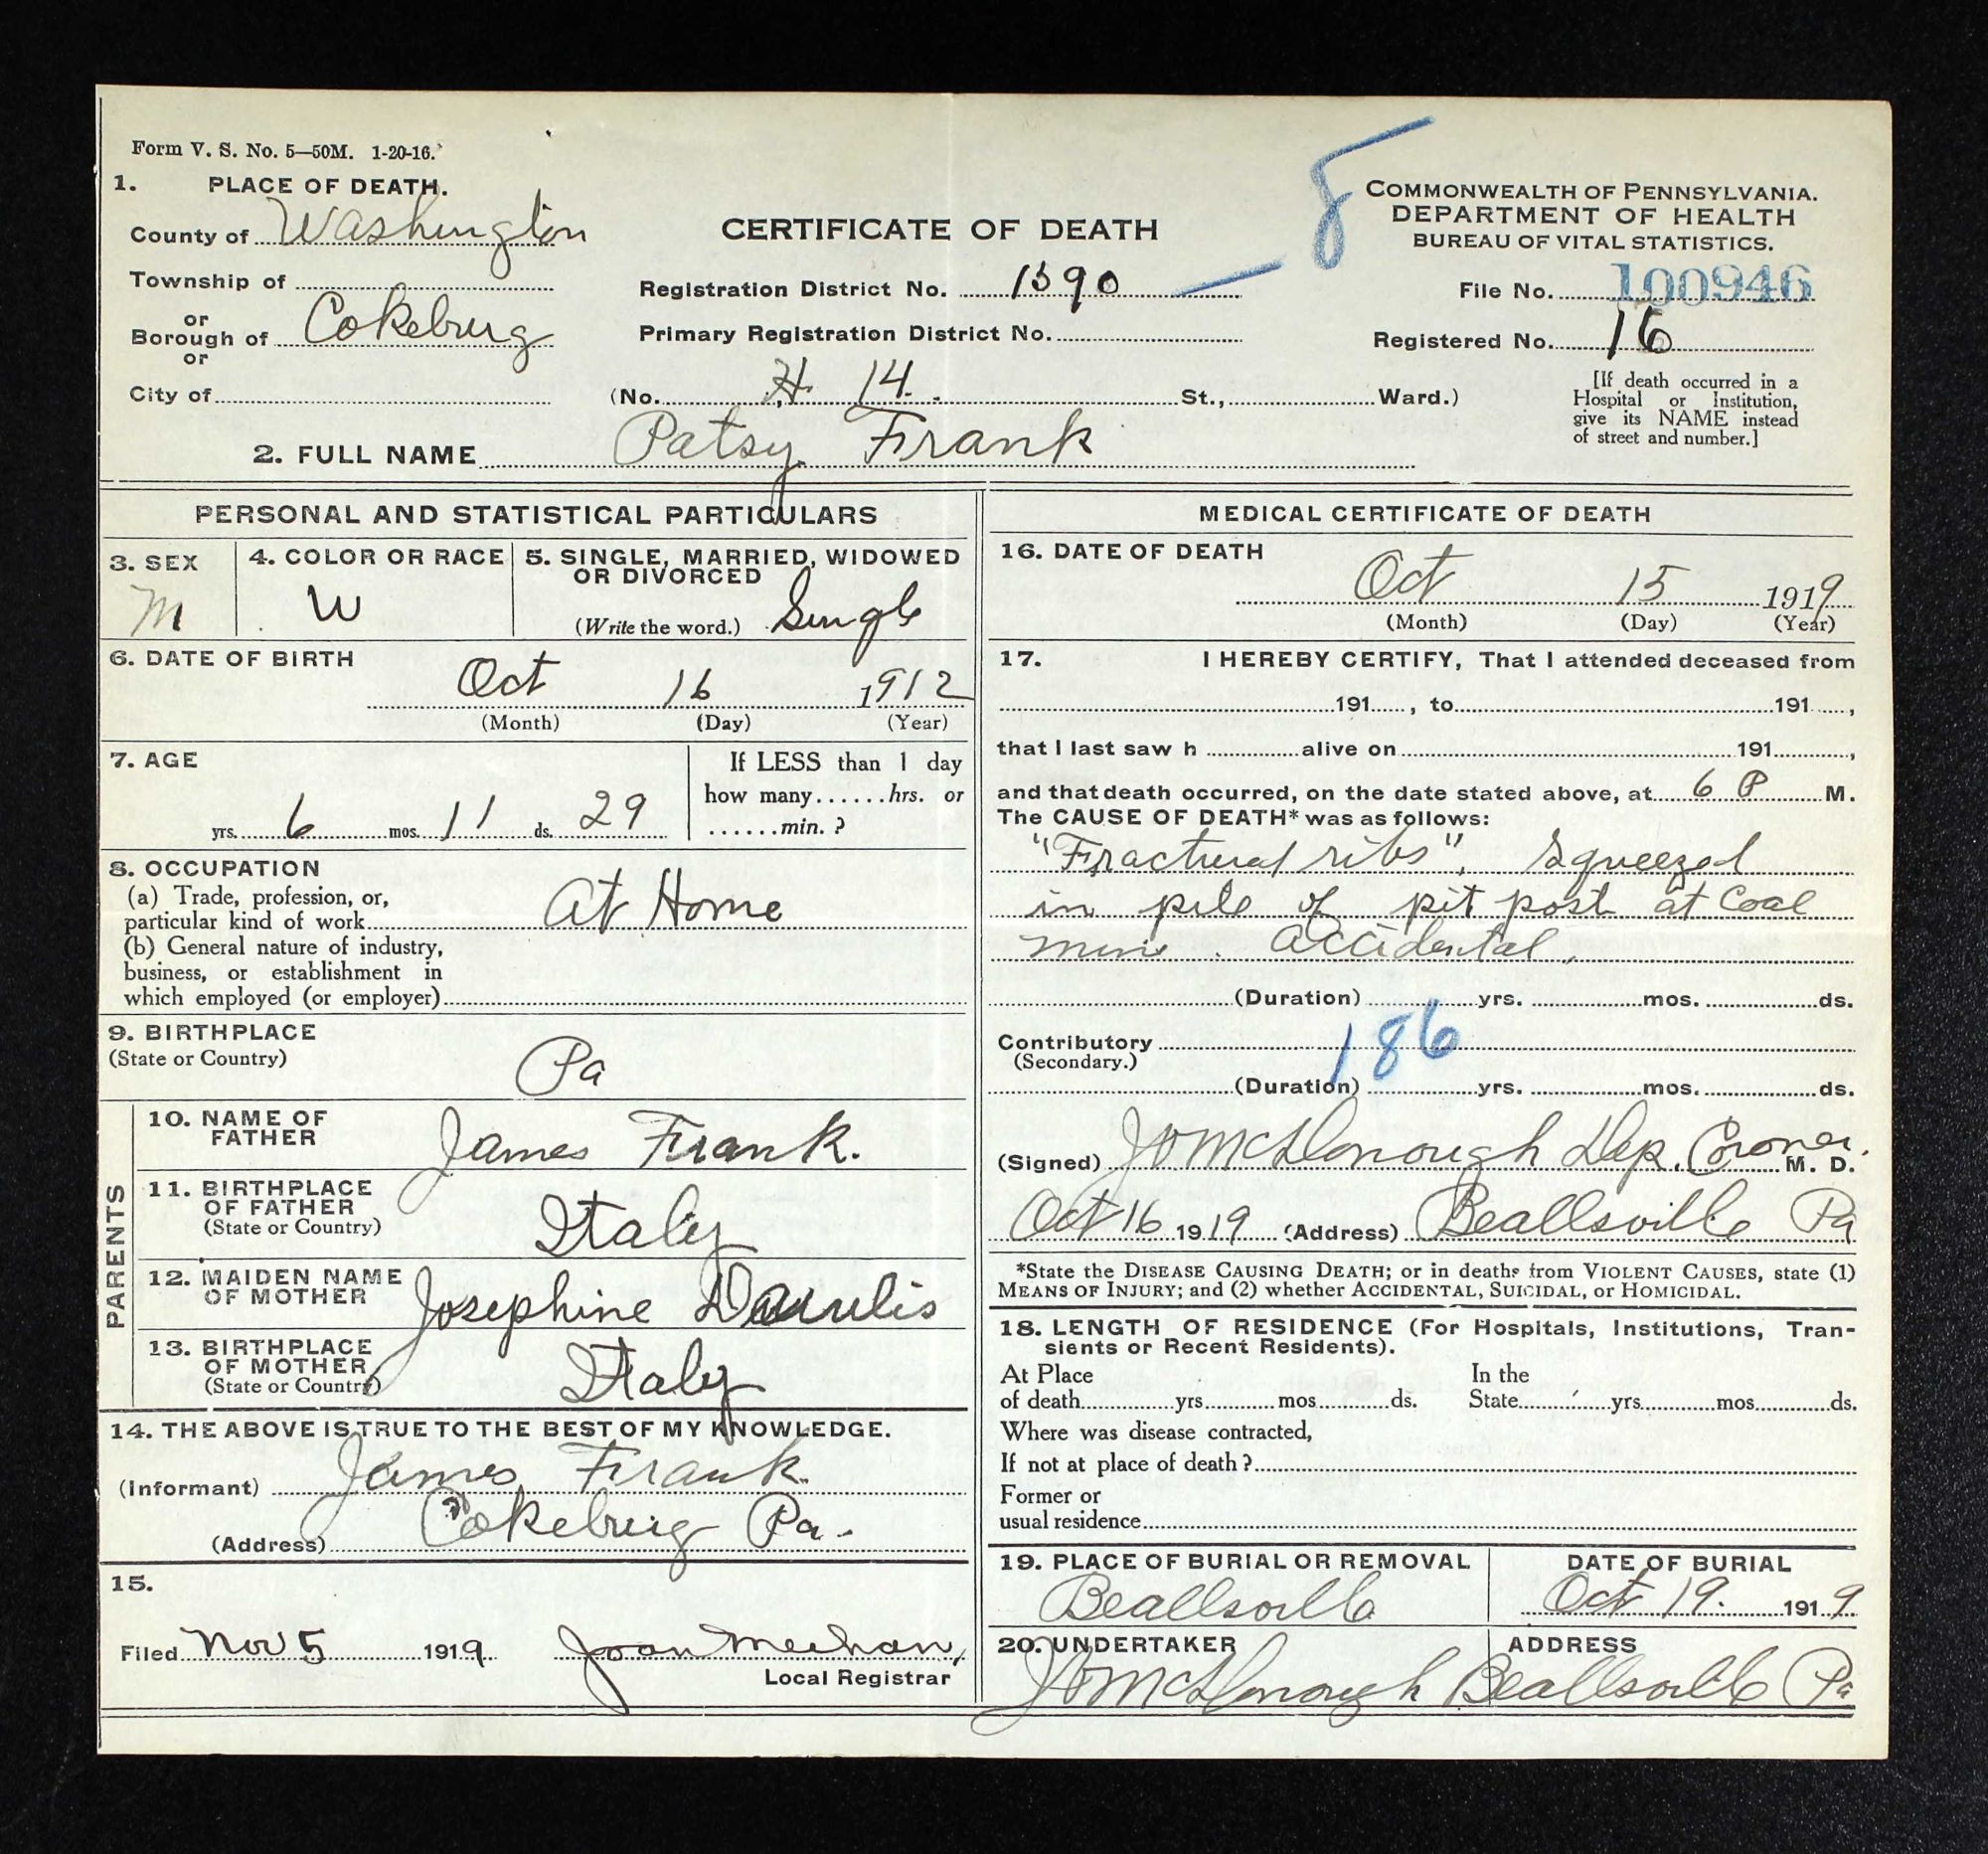 Form V. S. No. 5—50M. 1-20-16.
1. PLACE OF DEATH.
County of Washington
Township of
or
Borough of Cokeburg
or
City of
CERTIFICATE OF DEATH
Registration District No. 1590
Primary Registration District No.
(No. H. 14. St., Ward.)
8
COMMONWEALTH OF PENNSYLVANIA.
DEPARTMENT OF HEALTH
BUREAU OF VITAL STATISTICS.
File No. 100946
Registered No. 16
[If death occurred in a
Hospital or Institution,
give its NAME instead
of street and number.]
2. FULL NAME Patsy Frank
PERSONAL AND STATISTICAL PARTICULARS
3. SEX
M
4. COLOR OR RACE
W
5. SINGLE, MARRIED, WIDOWED
OR DIVORCED
(Write the word.) Single
6. DATE OF BIRTH
Oct 16 1912
(Month) (Day) (Year)
7. AGE
yrs. 6 mos. 11 ds. 29
If LESS than 1 day
how many......hrs. or
......min. ?
8. OCCUPATION
(a) Trade, profession, or,
particular kind of work At Home
(b) General nature of industry,
business, or establishment in
which employed (or employer)
9. BIRTHPLACE
(State or Country)
Pa
PARENTS
10. NAME OF
FATHER
James Frank.
11. BIRTHPLACE
OF FATHER
(State or Country)
Italy
12. MAIDEN NAME
OF MOTHER
Josephine
13. BIRTHPLACE
OF MOTHER
(State or Country)
Italy
14. THE ABOVE IS TRUE TO THE BEST OF MY KNOWLEDGE.
(Informant) James Frank.
(Address) Cokeburg Pa.
15.
Filed Nov 5 1919 Meehan,
Local Registrar
MEDICAL CERTIFICATE OF DEATH
16. DATE OF DEATH
Oct 15 1919
(Month) (Day) (Year)
17. I HEREBY CERTIFY, That I attended deceased from
191...., to 191....,
that I last saw h alive on 191....,
and that death occurred, on the date stated above, at 6 P M.
The CAUSE OF DEATH* was as follows:
"Fractured ribs", Squeezed
in pile of pit post at Coal
mine. Accidental,
(Duration) yrs. mos. ds.
Contributory
(Secondary.)
186
(Duration) yrs. mos. ds.
(Signed) JO McDonough Dep. Coroner. M. D.
Oct 16 1919 (Address) Beallsville Pa
*State the DISEASE CAUSING DEATH; or in deaths from VIOLENT CAUSES, state (1)
MEANS OF INJURY; and (2) whether ACCIDENTAL, SUICIDAL, or HOMICIDAL.
18. LENGTH OF RESIDENCE (For Hospitals, Institutions, Tran-
sients or Recent Residents).
At Place In the
of death yrs. mos. ds. State yrs. mos. ds.
Where was disease contracted,
If not at place of death?
Former or
usual residence
19. PLACE OF BURIAL OR REMOVAL
Beallsville
DATE OF BURIAL
Oct 19. 1919
20. UNDERTAKER
JO McDonough
ADDRESS
Beallsville Pa